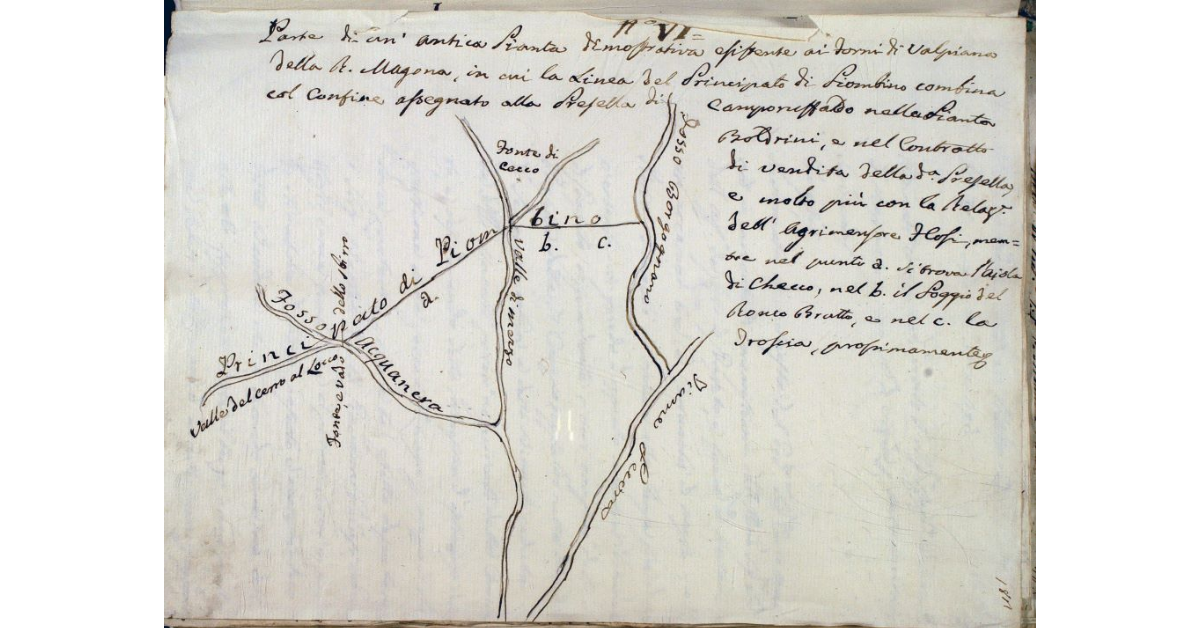 nº VI=
Parte di un' antica Pianta dimostrativa esistente ai Forni di Valpiana
della R. Magona, in cui la Linea del Principato di Piombino combina
col Confine assegnato alla Presella di Camporuffaldo nella Pianta
Boldrini, e nel Contratto
di vendita della dª. Presella,
e molto più con la Relazº.
dell' Agrimensore Flosi, men=
tre nel punto a. si trova l'Aiola
di Checco, nel b. il Poggio del
Ronco Brutto, e nel c. la
Troscia, prossimamente
Fonte di
Cecco
Fosso Borgognano
Principato di Piombino
a.
b. c.
Valle di mezzo
Fosso Acquanera
dello sbirro
Valle del cerro al Loco
Fonte e vado
Fiume Pecora